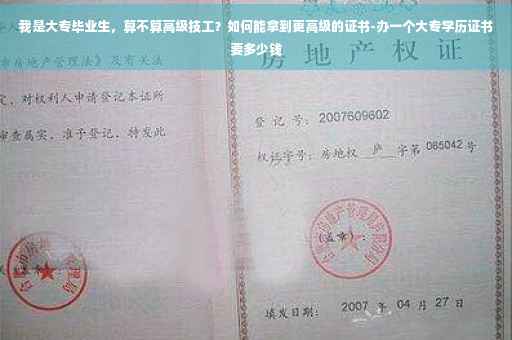 我是大专毕业生，算不算高级技工？如何能拿到更高级的证书-办一个大专学历证书
要多少钱
房地产权证
市房地产管理法》及有关法
定，对权利人申请登记本证所
审查属实，准予登记，特发此
登记号：2007609602
权证字号：房地权 庐 字第 085042 号
(盖章)：
填发日期： 2007 年 04 月 27 日